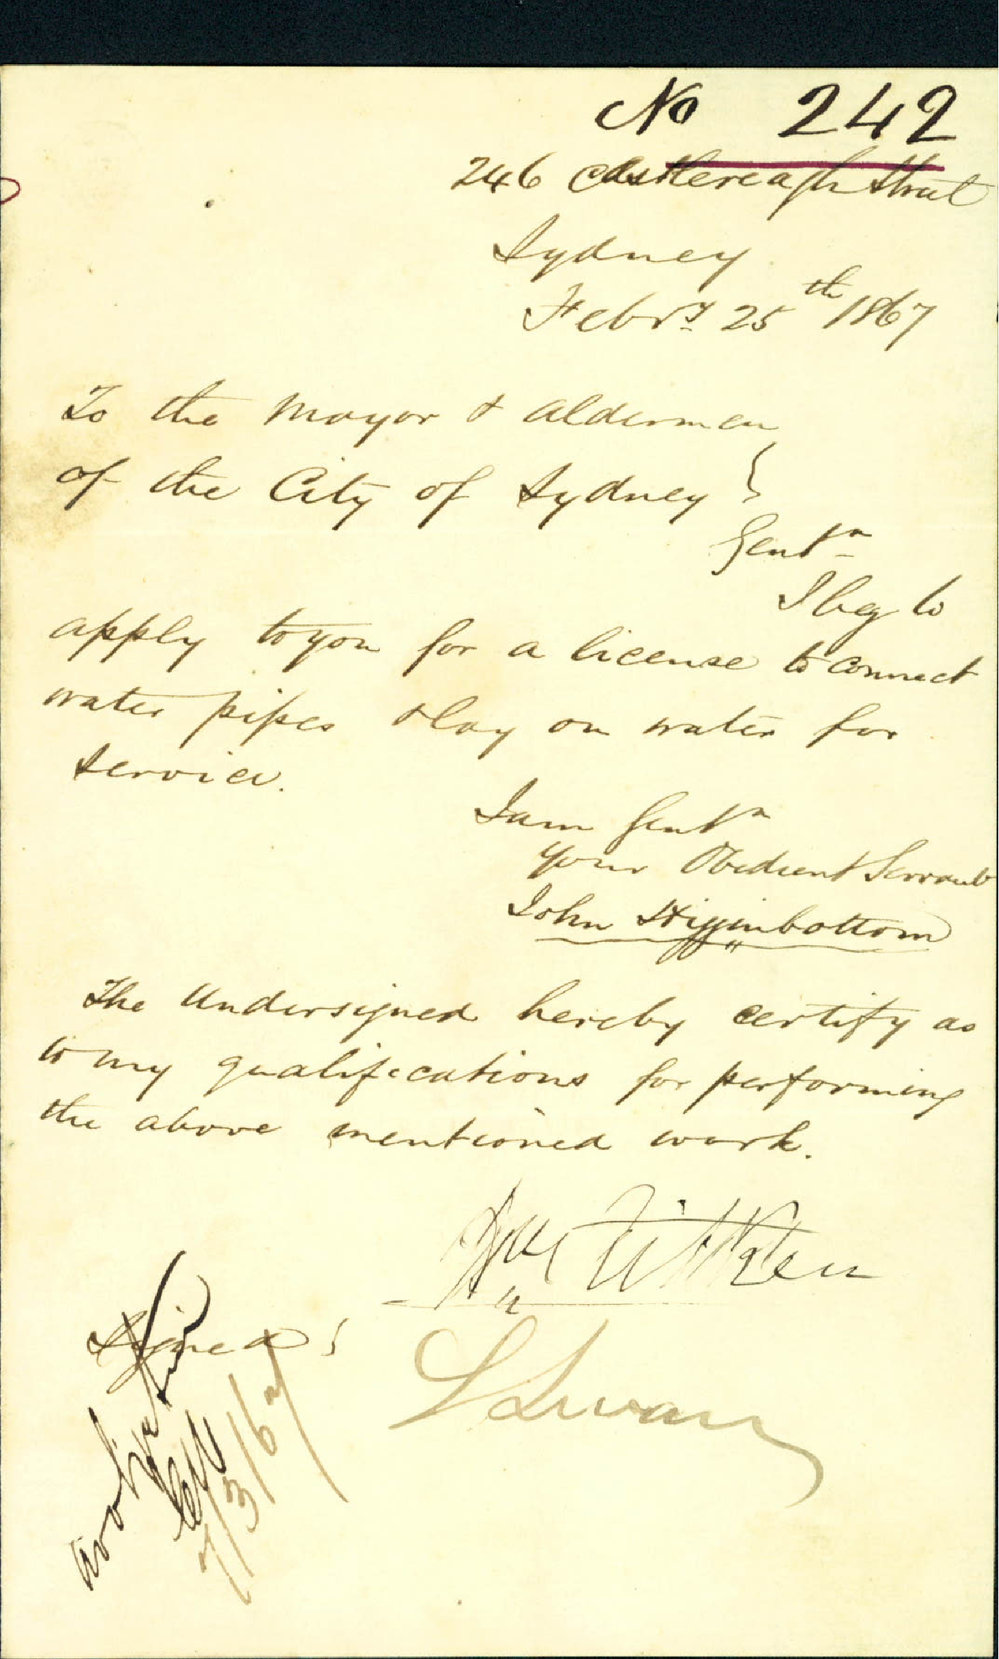 No 242
246 Castlereagh Street
Sydney
Febry 25th 1867
To the Mayor & Aldermen
of the City of Sydney }
Gentn
I beg to
apply to you for a license to connect
water pipes & lay on water for
service.
I am Gentn
your Obedient Servant
John Higginbottom
The Undersigned hereby certify as
to my qualifications for performing
the above mentioned work.
Wm
Signed }
L Swan
7/3/67